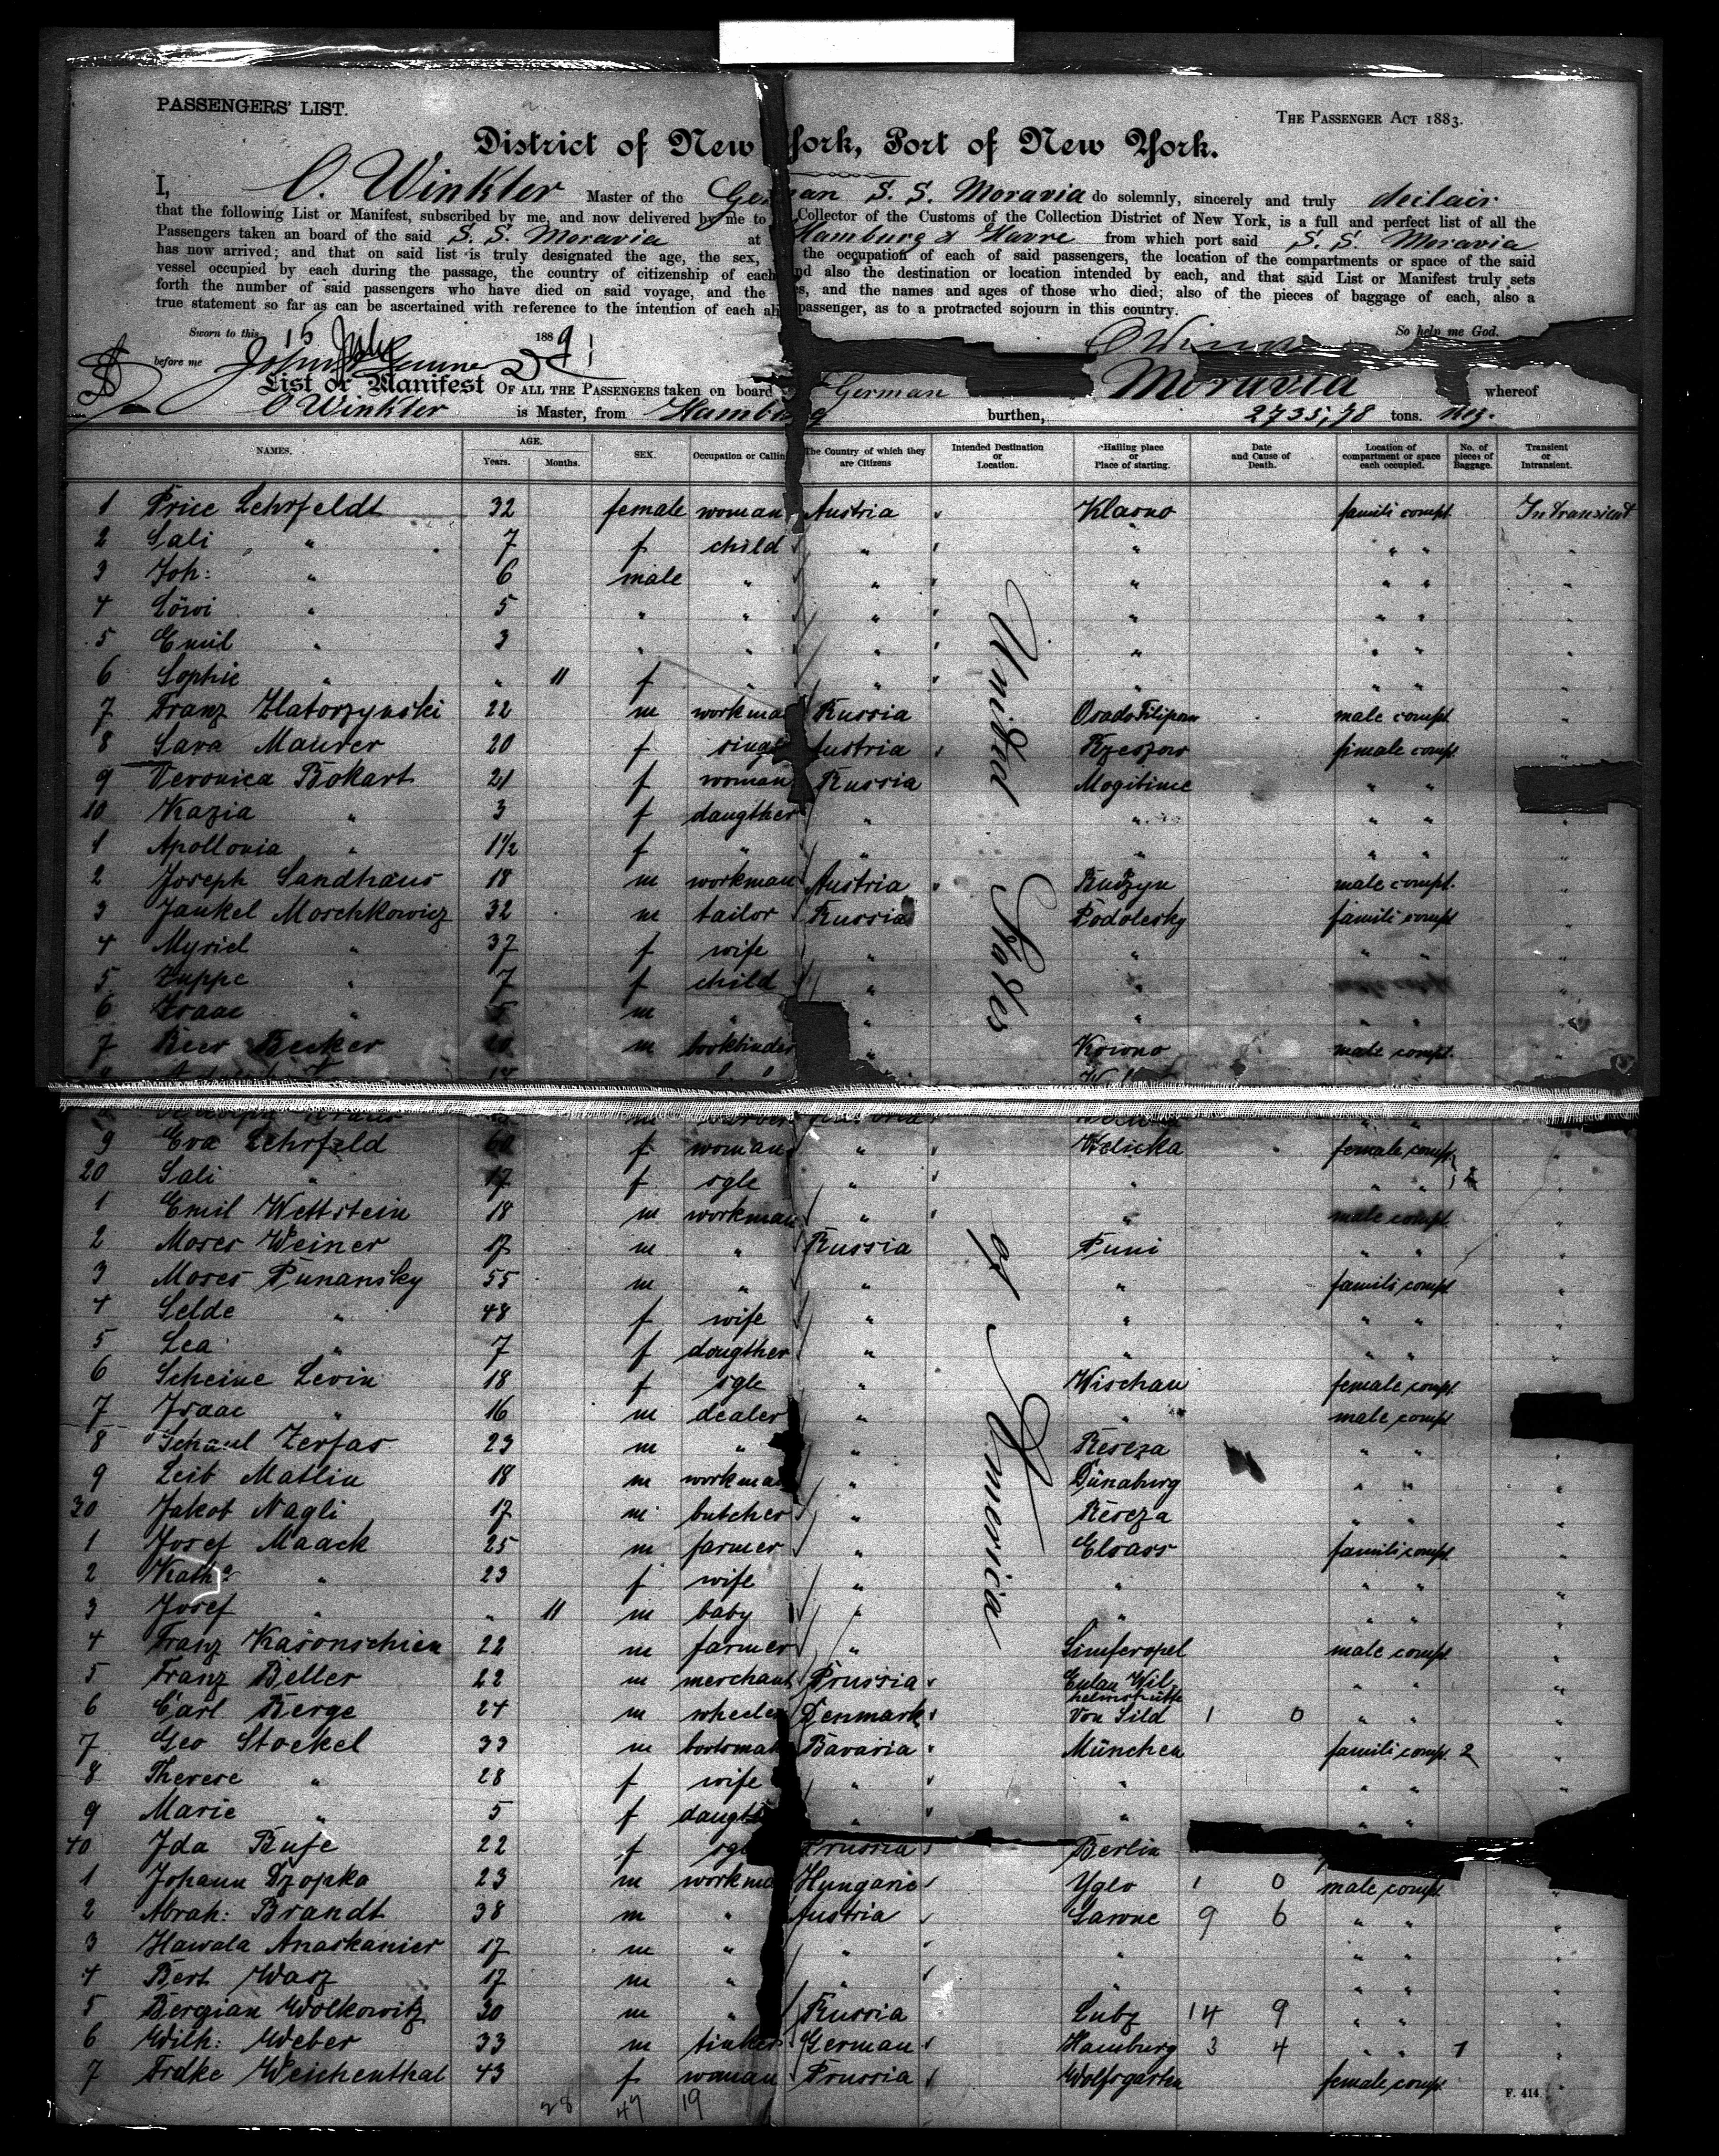 PASSENGERS' LIST.
THE PASSENGER ACT 1883.
District of New York, Port of New York.
I, O. Winkler Master of the German S. S. Moravia do solemnly, sincerely and truly
that the following List or Manifest, subscribed by me, and now delivered by me to Collector of the Customs of the Collection District of New York, is a full and perfect list of all the
Passengers taken an board of the said S. S. Moravia at Hamburg & Havre from which port said S. S. Moravia
has now arrived; and that on said list is truly designated the age, the sex, the occupation of each of said passengers, the location of the compartments or space of the said
vessel occupied by each during the passage, the country of citizenship of each and also the destination or location intended by each, and that said List or Manifest truly sets
forth the number of said passengers who have died on said voyage, and the and the names and ages of those who died; also of the pieces of baggage of each, also a
true statement so far as can be ascertained with reference to the intention of each passenger, as to a protracted sojourn in this country.
Sworn to this 15 July 1889 So help me God.
before me John
List or Manifest OF ALL THE PASSENGERS taken on board German Moravia whereof
O Winkler is Master, from Hamburg burthen, 2735,78 tons.
NAMES. AGE. Years. Months. SEX. Occupation or Calling The Country of which they are Citizens Intended Destination or Location. Hailing place or Place of starting. Date and Cause of Death. Location of compartment or space each occupied. No. of pieces of Baggage. Transient or Intransient.
United States of America
1 Price Lehrfeldt 32 female woman Austria Klasno famili compt. Intransient
2 Sali " 7 f child " " " " "
3 Joh: " 6 male " " " " " "
4 Löwi " 5 " " " " " " "
5 Emil " 3 " " " " " " "
6 Sophie " " 11 f " " " " "
7 Franz Zlatorzynski 22 m workman Russia male compt. "
8 Sara Maurer 20 f Austria Rzeszow female compt. "
9 Veronica Bokart 21 f woman Russia Mogilnine " "
10 Kazia " 3 f daugther " " " " "
1 Apollonia " 1½ f " " " " " "
2 Joseph Sandhaus 18 m workman Austria Budzyn male compt. "
3 Jankel Moschkowicz 32 m tailor Russia Podolesky famili compt "
4 Myriel " 37 f wife " " " " "
5 Zuppe " 7 f child " " "
6 Isaac " 5 m " " " " " "
7 Beer Becker 20 m bookbinder " Kowno male compt. "
9 Eva Lehrfeld 60 f woman " Welicka female compt. "
20 Sali " 17 f sgle " " " " "
1 Emil Wettstein 18 m workman " " male compt "
2 Moses Weiner 17 m " Russia Puni " " "
3 Moses Punansky 55 m " " " famili compt "
4 Selde " 48 f wife " " " " "
5 Lea " 7 f dougther " " " " "
6 Scheine Levin 18 f sgle " Wischau female compt.
7 Isaac " 16 m dealer " " male compt
8 Schaul Zerfas 23 m " " Reseza " " "
9 Leib Matlin 18 m workman " Dünaburg " " "
30 Jakob Nagli 17 m butcher " Reseza " " "
1 Josef Maack 25 m farmer " famili compt. "
2 Kath. " 23 f wife " " " " "
3 Josef " " 11 m baby " " " " "
4 Franz Kasonschien 22 m farmer " Simferopel male compt "
5 Franz Beller 22 m merchant Prussia Eulau Wilhelmshütte " " "
6 Carl Berge 24 m Denmark Von Sild 1 0 " " "
7 Geo Stockel 33 m Bavaria München famili compt. 2 "
8 Therese " 28 f wife " " " " "
9 Marie " 5 f " " " "
40 Ida Bufe 22 f Prussia Berlin
1 Johann Dzopka 23 m Hungarie Yglo 1 0 male compt. "
2 Abrah: Brandt 38 m " Austria Sawne 9 6 " " "
3 Hawala Anaskanier 17 m " " " " " "
4 Bert Wasz 17 m " " " " "
5 Bergian Wolkowitz 30 m " Russia Lubz 14 9 " " "
6 Wilh: Weber 33 m tinker German Hamburg 3 4 " " 1 "
7 Frdke Weichenthal 43 f woman Prussia female compt. "
28 47 19
F. 414